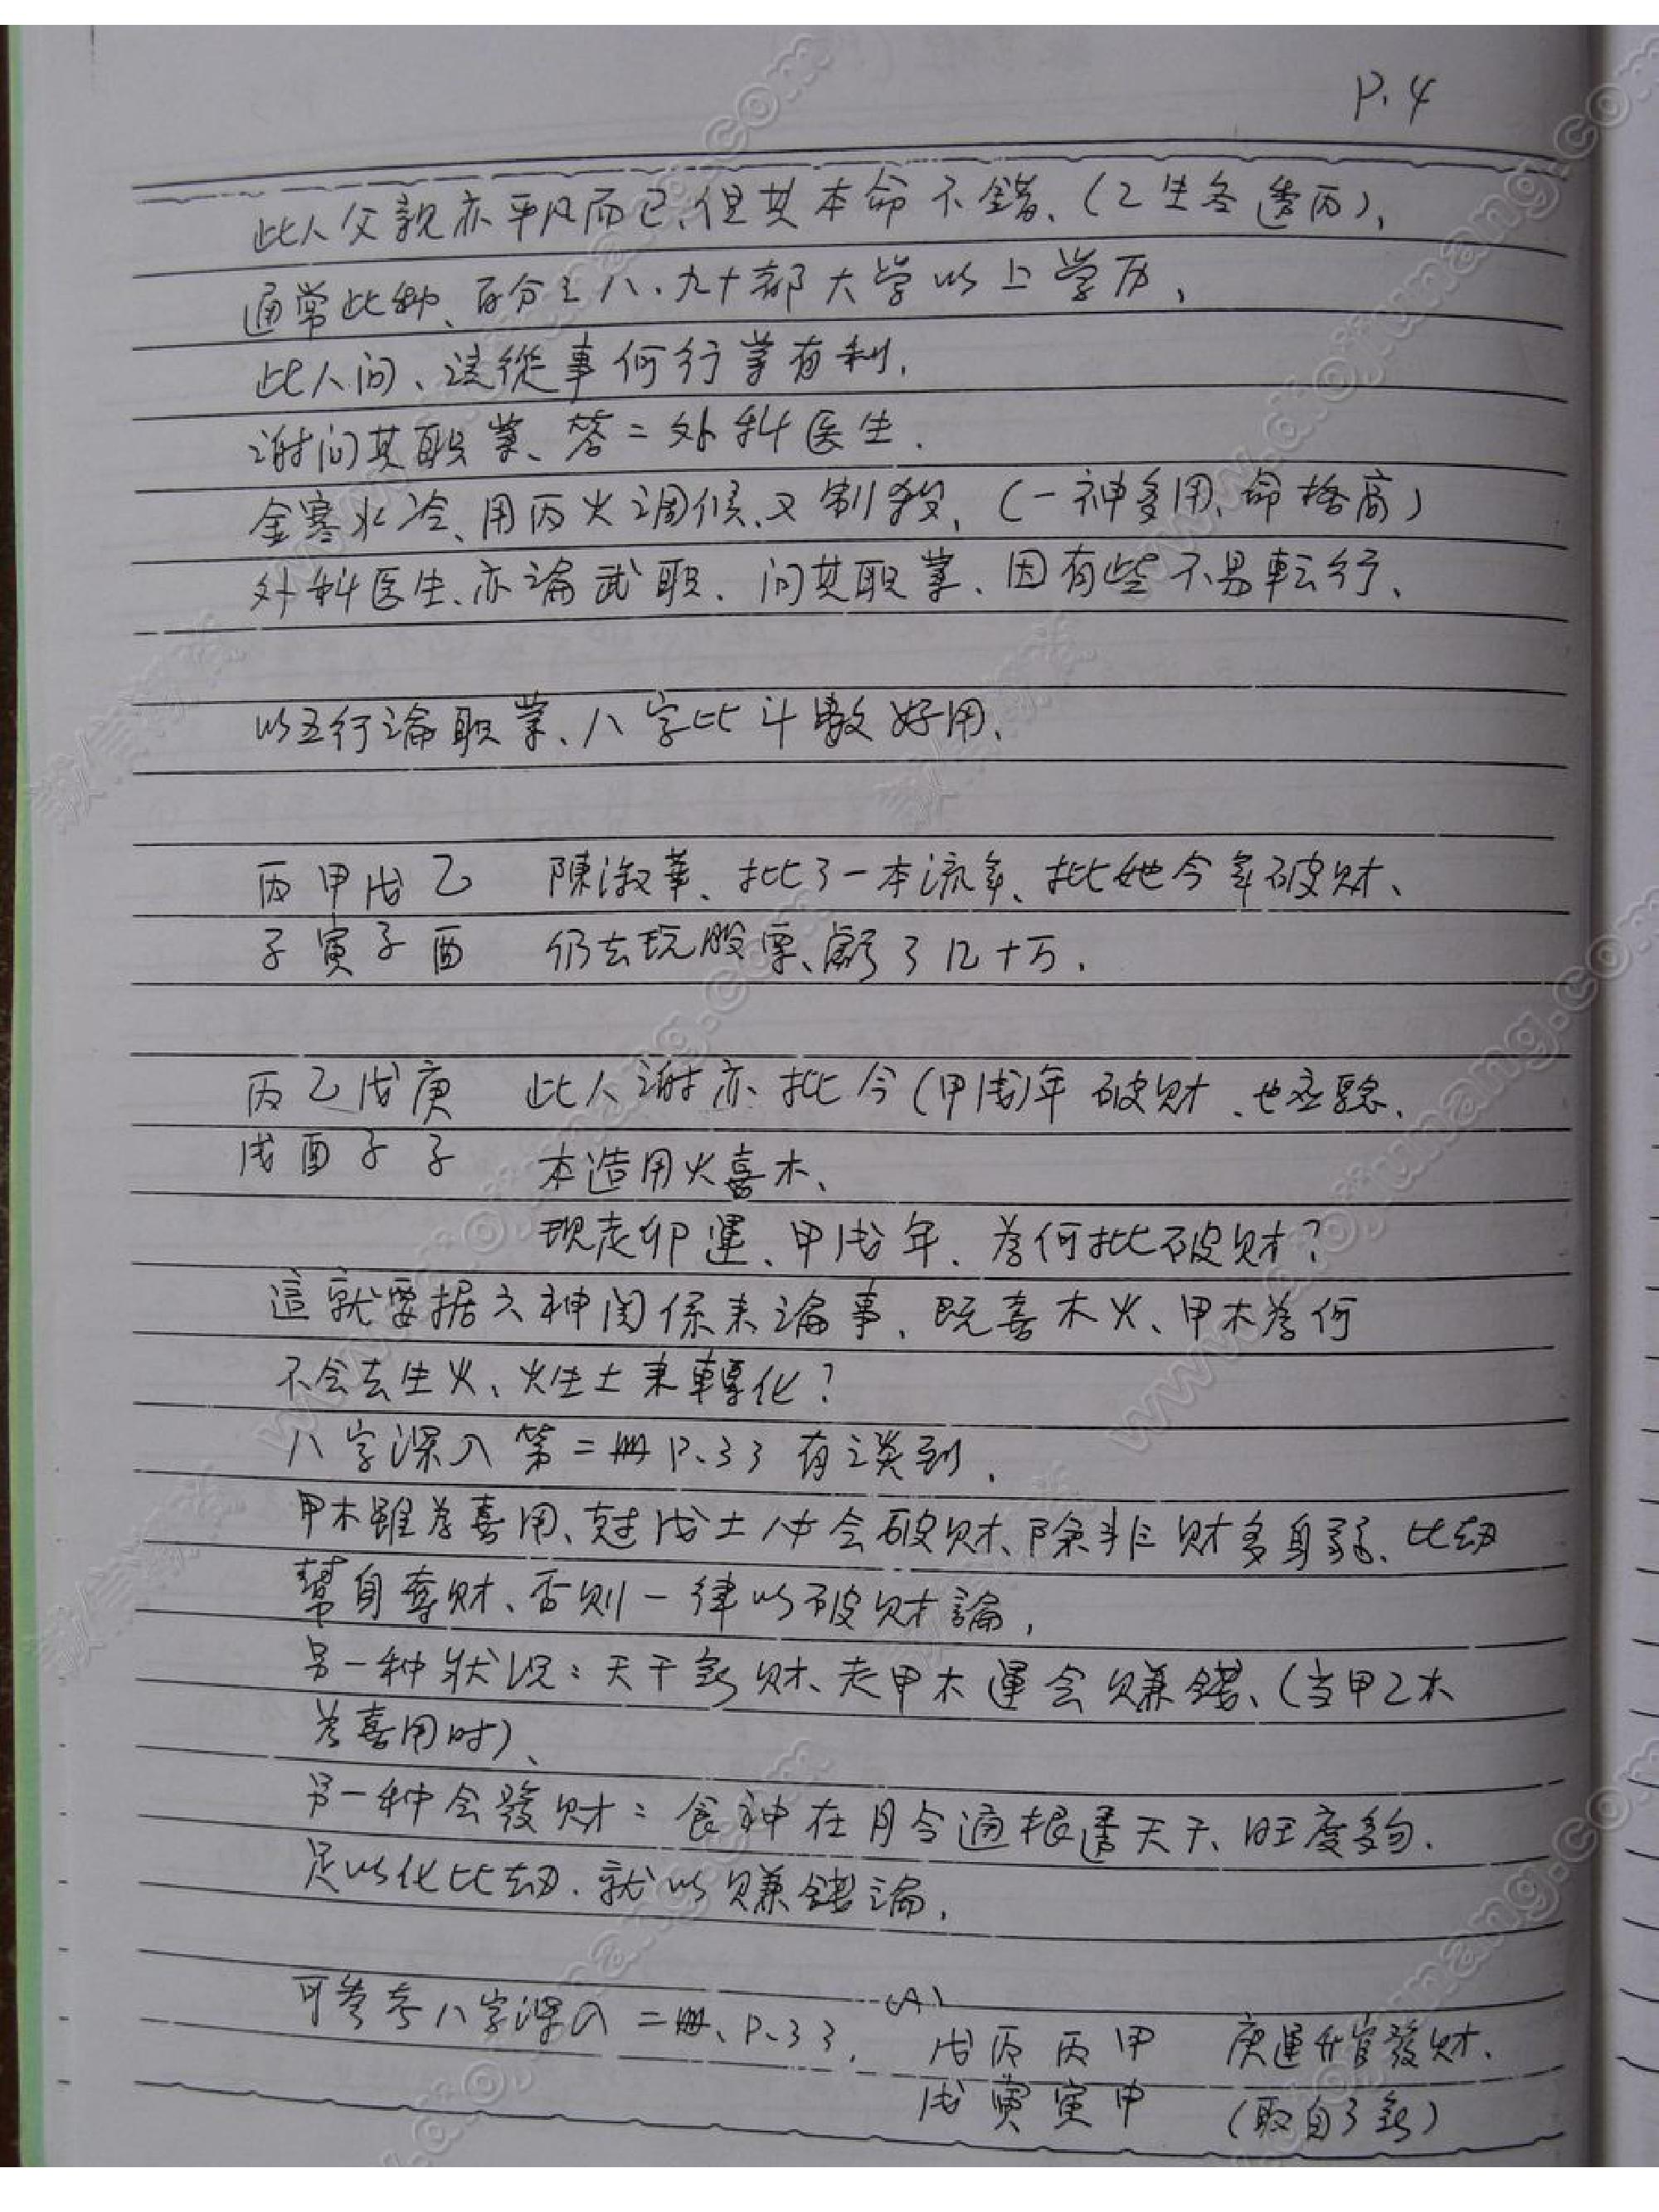 P.4
此人父親亦平凡而已、但其本命不錯、(乙生冬透丙)、
通常此种、百分之八、九十都大学以上学历、
此人问、该從事何行業有利、
谢问其职業、答=外科医生.
金寒水冷、用丙火调候、又制殺、(一神多用、命格高)
外科医生、亦論武职、问其职業、因有些不易転行、
以五行論职業、八字比斗數好用、
丙甲戊乙 陳淑華、批了一本流年、批她今年破财、
子寅子酉 仍去玩股票、虧了几十万.
丙乙戊庚 此人谢亦批今(甲戌)年破财、也应驗、
戌酉子子 本造用火喜木、
现走卯運、甲戌年、為何批破财?
這就要据六神関係来論事、既喜木火、甲木為何
不会去生火、火生土来轉化?
八字深入第二冊P.33有談到、
甲木雖為喜用、尅戊土仍会破财、除非财多身弱、比劫
幫身奪财、否则一律以破财論、
另一种状况:天干無财、走甲木運会赚錢、(当甲乙木
為喜用时)、
另一种会發财:食神在月令通根透天干、旺度多、
足以化比劫、就以赚錢論、
可参考八字深入二冊、P.33、(A)
戊丙丙甲 庚運升官發财、
戌寅寅申 (取自了無)